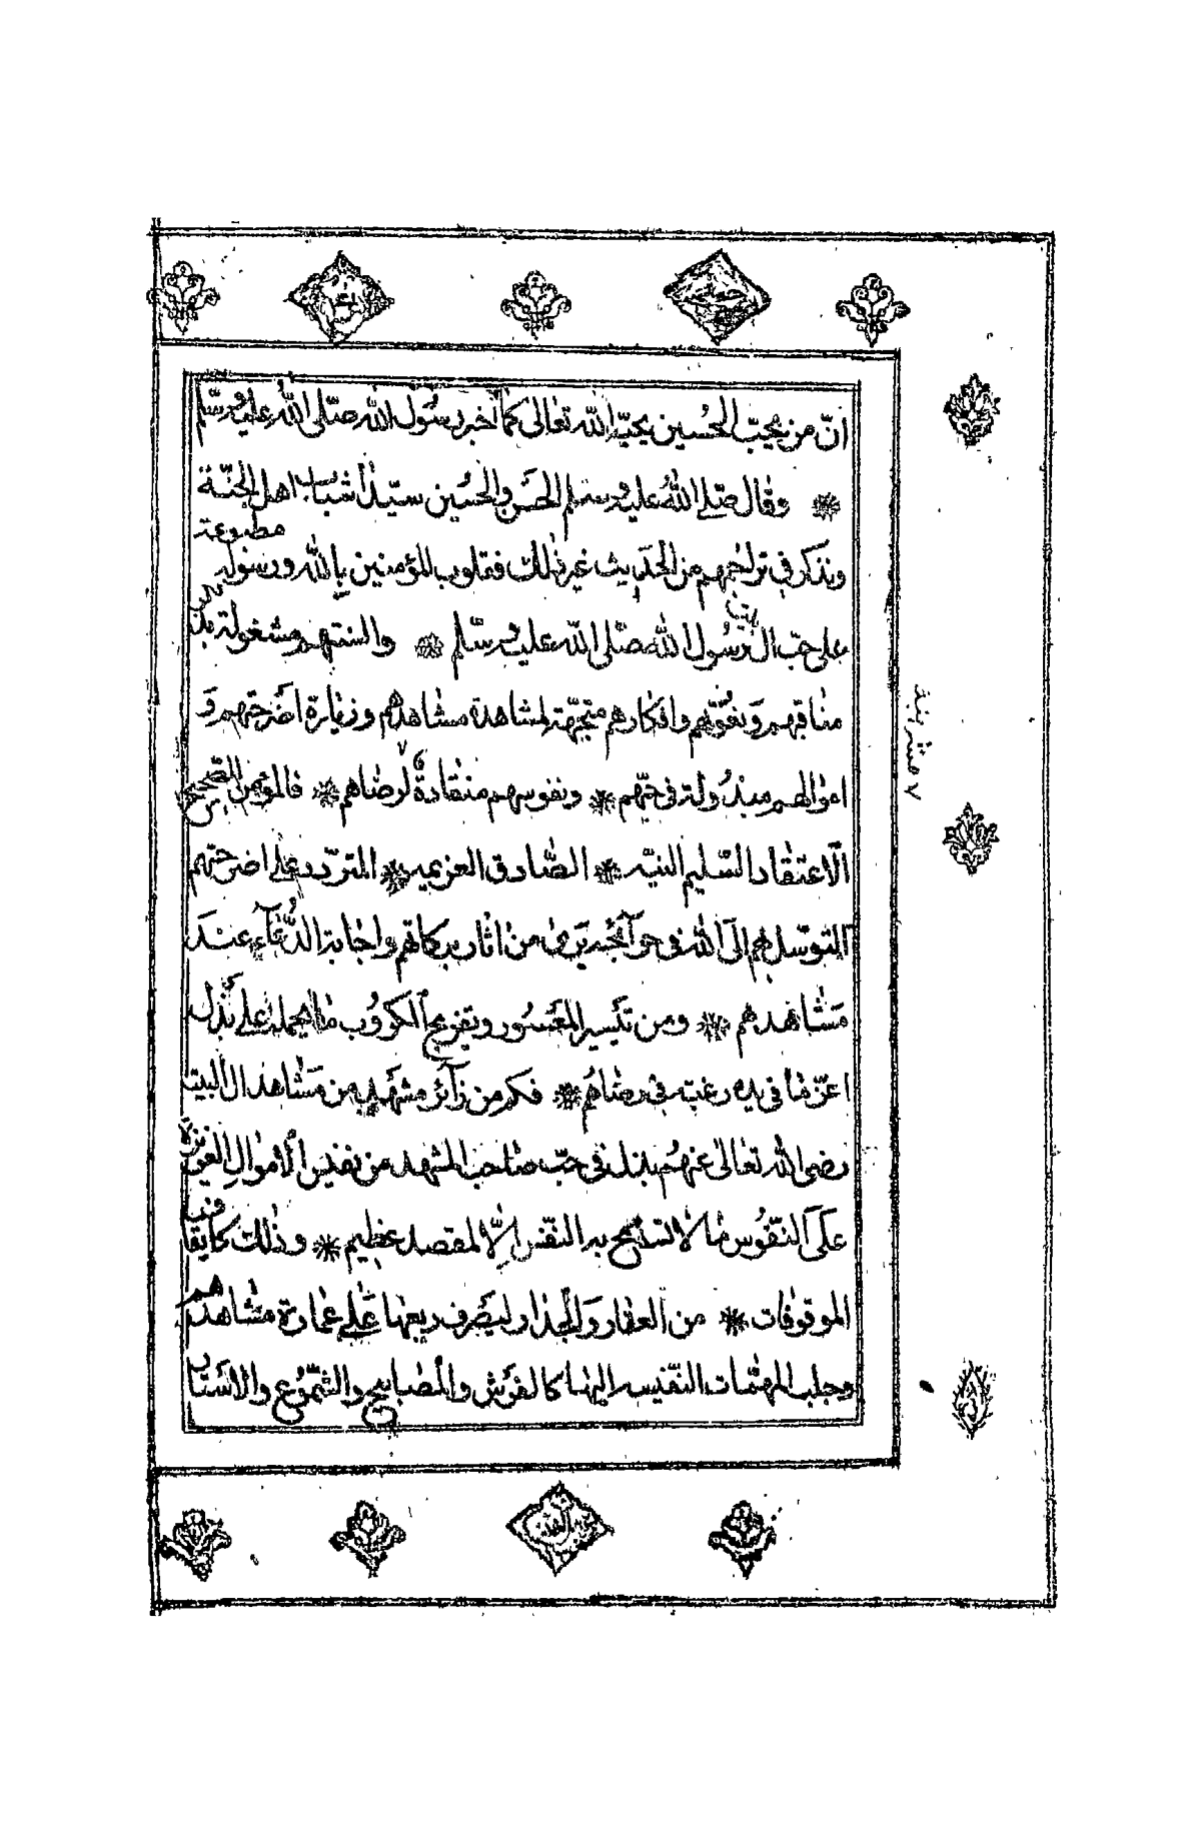 انّ من يحبّ الحُسين يحبّه الله تعالى كما أخبر رسُول الله صلّى الله عليه وسلّم
وقال صلى الله عليه وسلم الحسَن والحُسين سيّدا شباب اهل الجنّة
ونذكر فى تراجمهم من الحديث غير ذلك فقلوب المؤمنين بالله ورسوله مطبوعة
على حبّ ال بيت رسُول الله صلّى الله عليه وسلّم والسنتهم مشغولة بذكر
مناقبهم ونفوسهم وافكارهم متوجّهة لمشاهدة مشاهدهم وزيارة اضرحتهم وَ
اموالهم مبذُولة فى حبّهم ونفوسهم منقادة لرضاهم فالمؤمن الصّحيح
الاعتقاد السّليم النيّه الصّادق العزيمه المتردّد على اضرحتهم
المتوسّل بهم الى الله فى حوآئجه يرى من اثار بركاتهم واجابة الدُّعآء عندَ
مَشاهدهم ومن تَيسير المعَسُور وتفريج الكرُوب ما يحمله على بَذل
اعزّ ما فى يده رغبة فى رضاهُم فكم من زآئر مشهَد من مَشاهد ال البيت
رضى الله تعالى عنهُم بذل فى حبّ صاحب المشهد من نفيس الأموالِ العزيزة
عَلَى النّفُوس ما لا تسمح به النفس الّا لمقصد عظيم وذلك كايقاف
الموقوفات من العقار وَالجدار ليصَرف ريعها عَلى عمارة مشاهدهم
وجلب المهمّات النّفيسه اليها كالفرَش والمصَابيح والشّمُوع والاسَتار